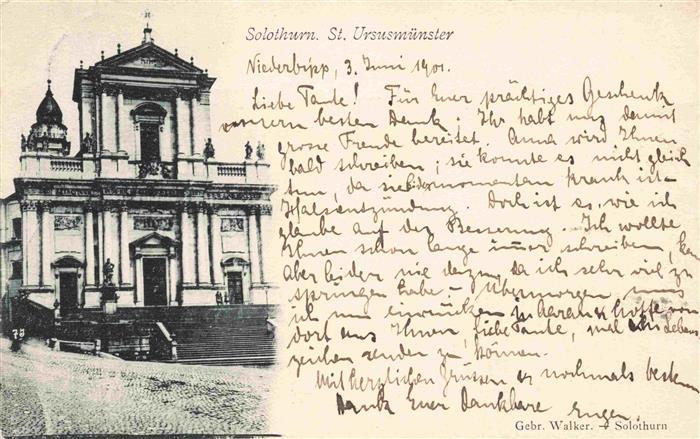 Solothurn. St. Ursusmünster
Niederbipp, 3. Juni 1901.
Liebe Tante! Für Euer prächtiges Geschenk
unsern besten Dank; Ihr habt uns damit
grosse Freude bereitet. Anna wird Ihnen
bald schreiben; sie konnte es nicht gleich
tun, da sie momentan krank ist
Halsentzündung. Doch ist es, wie ich
glaube auf der Besserung. Ich wollte
Ihnen schon lange immer schreiben,
Aber leider nie dazu, da ich sehr viel zu
springen habe. Übermorgen muss
ich nun einrücken in Aarau & hoffe von
dort aus Ihnen, liebe Tante, mal ein Lebens
zeichen senden zu können.
Mit herzlichen Grüssen & nochmals besten
Dank Euer dankbare Eugen.
75
Gebr. Walker. Solothurn